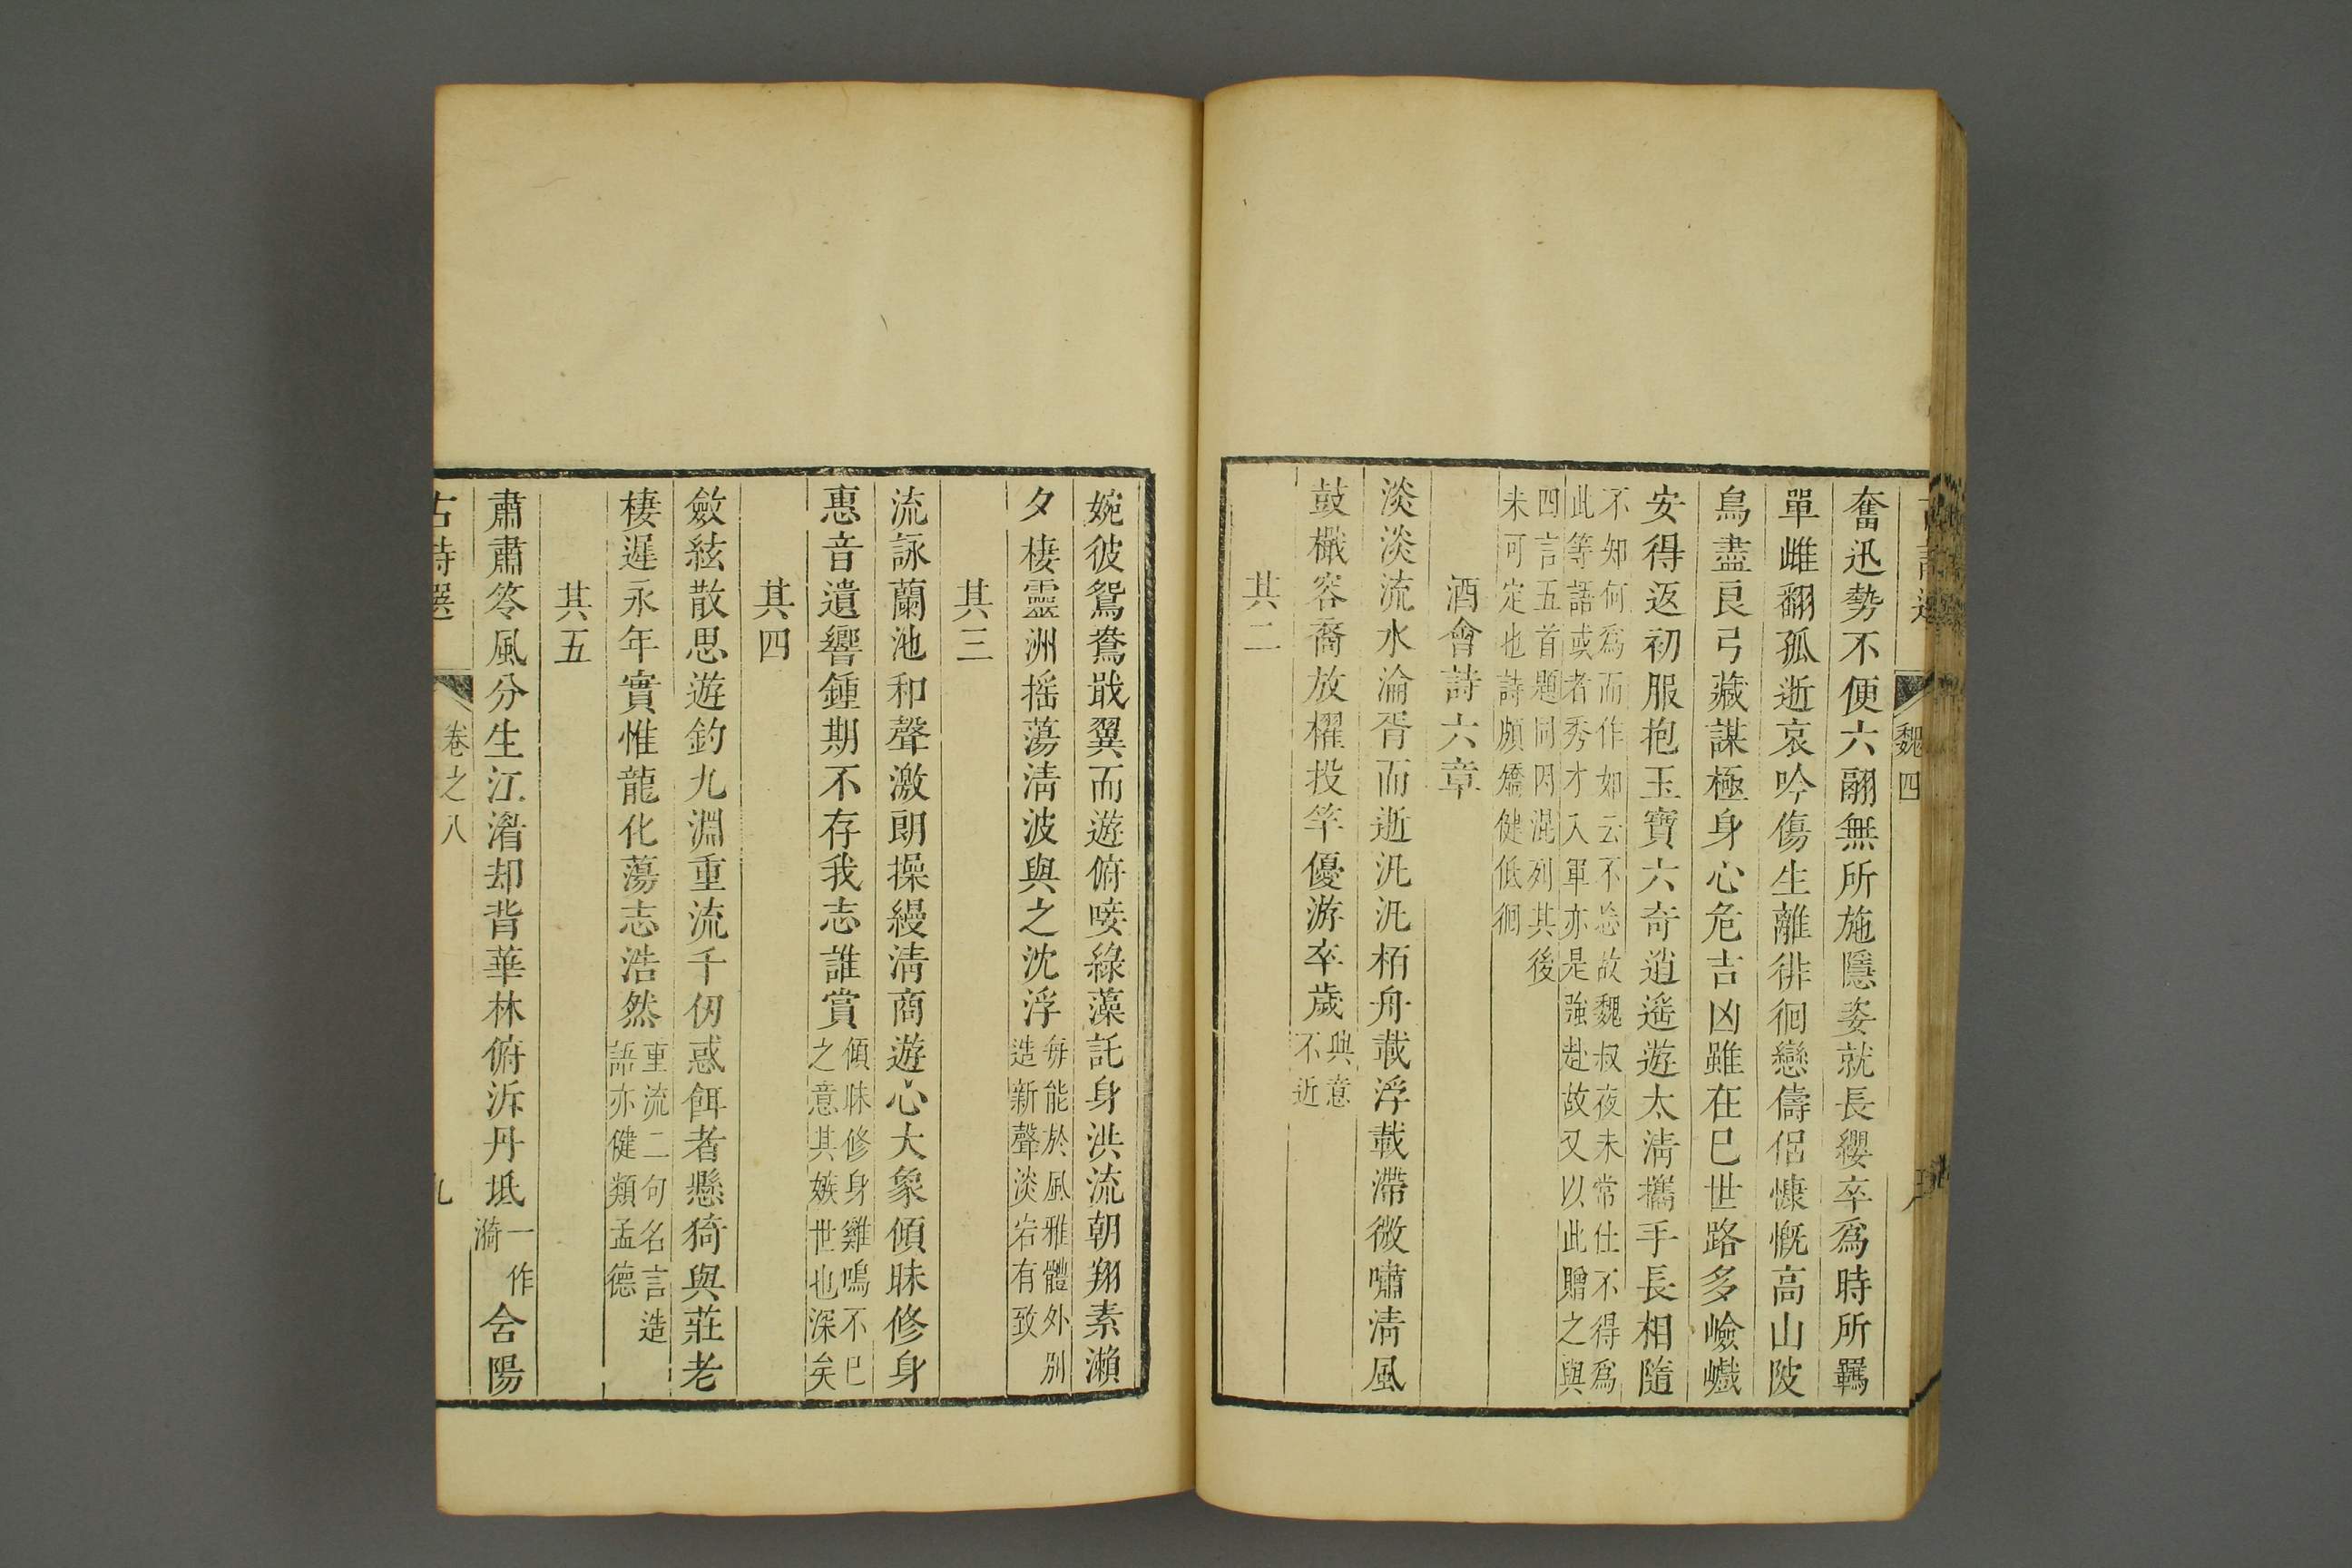 魏四
奮迅勢不便六翮無所施隱姿就長纓卒爲時所羈
單雌翻孤逝哀吟傷生離徘徊戀儔侶慷慨高山陂
鳥盡良弓藏謀極身心危吉凶雖在巳世路多嶮巇
安得返初服抱玉寶六奇逍遙遊太清攜手長相隨
不知何爲而作如云不忩故魏叔夜未常仕不得爲
此等語或者秀才入軍亦是強赴故又以此贈之與
四言五首題同因混列其後
未可定也詩頗矯健低徊
酒會詩六章
淡淡流水淪胥而逝汎汎栢舟載浮載滯微嘯清風
鼓檝容裔放櫂投竿優游卒歲
興意
不近
其二
婉彼鴛鴦戢翼而遊俯唼綠藻託身洪流朝翔素瀨
夕棲靈洲搖蕩清波與之沈浮
每能於風雅體外別
造新聲淡宕有致
其三
流詠蘭池和聲激朗操縵清商遊心大象傾昧修身
惠音遺響鍾期不存我志誰賞
傾昧修身雞鳴不巳
之意其嫉世也深矣
其四
斂絃散思遊釣九淵重流千仞惑餌者懸猗與莊老
棲遲永年實惟龍化蕩志浩然
重流二句名言造
語亦健類孟德
其五
肅肅笭風分生江湽却背華林俯泝丹坻
一作
漪
含陽
古詩選 卷之八 九